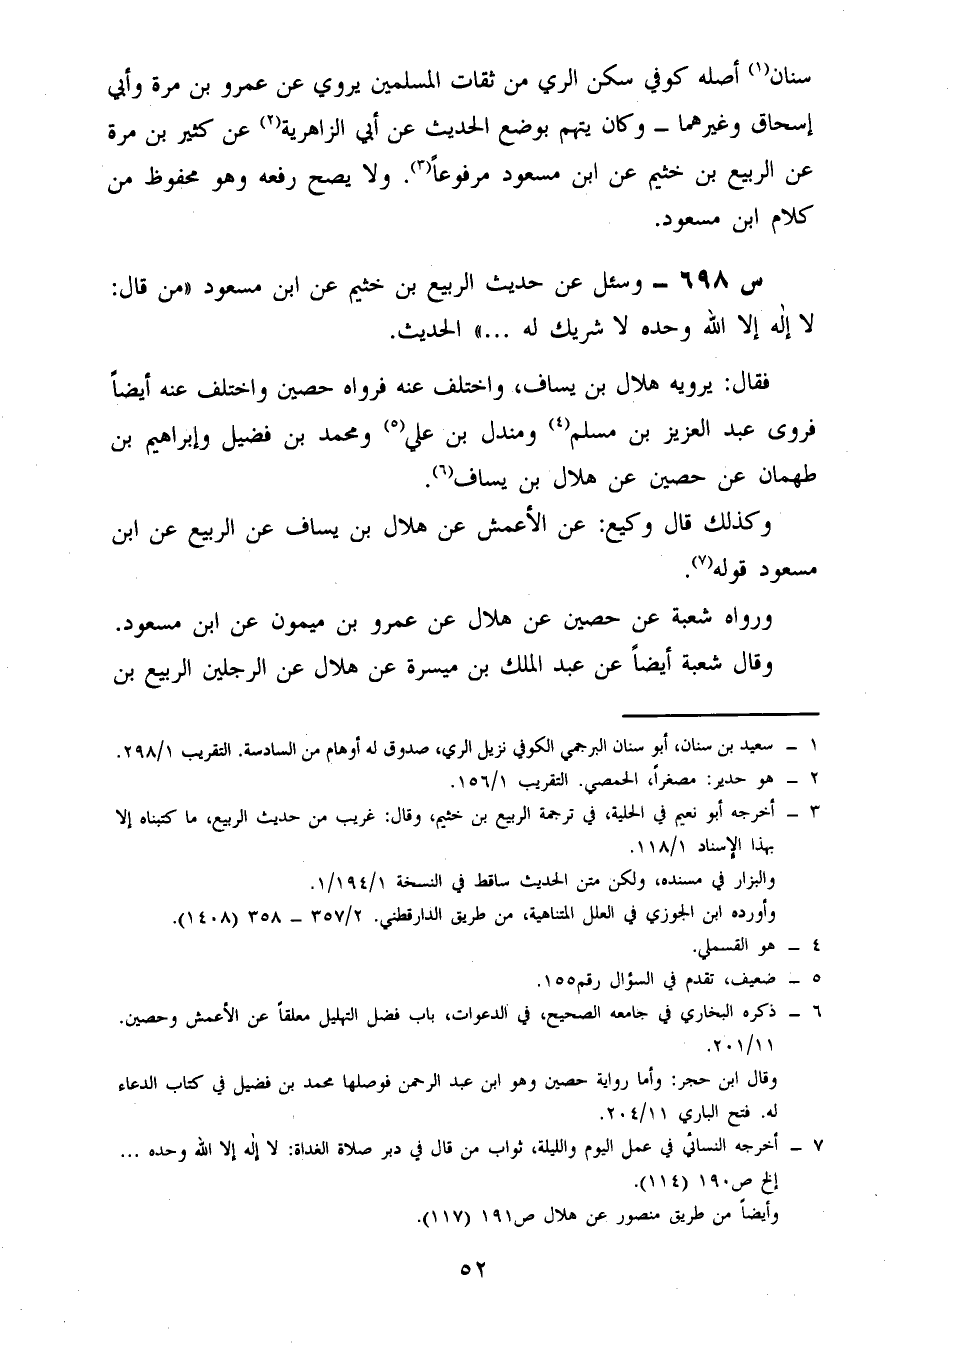 سنان(١) أصله كوفي سكن الري من ثقات المسلمين يروي عن عمرو بن مرة وأبي
إسحاق وغيرهما ــ وكان يتهم بوضع الحديث عن أبي الزاهرية(٢) عن كثير بن مرة
عن الربيع بن خثيم عن ابن مسعود مرفوعاً(٣). ولا يصح رفعه وهو محفوظ من
كلام ابن مسعود.
س ٦٩٨ ــ وسئل عن حديث الربيع بن خثيم عن ابن مسعود «من قال:
لا إلٰه إلا الله وحده لا شريك له ...» الحديث.
فقال: يرويه هلال بن يساف، واختلف عنه فرواه حصين واختلف عنه أيضاً
فروى عبد العزيز بن مسلم(٤) ومندل بن علي(٥) ومحمد بن فضيل وإبراهيم بن
طهمان عن حصين عن هلال بن يساف(٦).
وكذلك قال وكيع: عن الأعمش عن هلال بن يساف عن الربيع عن ابن
مسعود قوله(٧).
ورواه شعبة عن حصين عن هلال عن عمرو بن ميمون عن ابن مسعود.
وقال شعبة أيضاً عن عبد الملك بن ميسرة عن هلال عن الرجلين الربيع بن
١ ــ سعيد بن سنان، أبو سنان البرجمي الكوفي نزيل الري، صدوق له أوهام من السادسة. التقريب ٢٩٨/١.
٢ ــ هو حدير: مصغراً، الحمصي. التقريب ١٥٦/١.
٣ ــ أخرجه أبو نعيم في الحلية، في ترجمة الربيع بن خثيم، وقال: غريب من حديث الربيع، ما كتبناه إلا
بهذا الإسناد ١١٨/١.
والبزار في مسنده، ولكن متن الحديث ساقط في النسخة ١/١٩٤/١.
وأورده ابن الجوزي في العلل المتناهية، من طريق الدارقطني. ٣٥٧/٢ ــ ٣٥٨ (١٤٠٨).
٤ ــ هو القسملي.
٥ ــ ضعيف، تقدم في السؤال رقم١٥٥.
٦ ــ ذكره البخاري في جامعه الصحيح، في الدعوات، باب فضل التهليل معلقاً عن الأعمش وحصين.
٢٠١/١١.
وقال ابن حجر: وأما رواية حصين وهو ابن عبد الرحمن فوصلها محمد بن فضيل في كتاب الدعاء
له. فتح الباري ٢٠٤/١١.
٧ ــ أخرجه النسائي في عمل اليوم والليلة، ثواب من قال في دبر صلاة الغداة: لا إلٰه إلا الله وحده ...
إلخ ص١٩٠ (١١٤).
وأيضاً من طريق منصور عن هلال ص١٩١ (١١٧).
٥٢